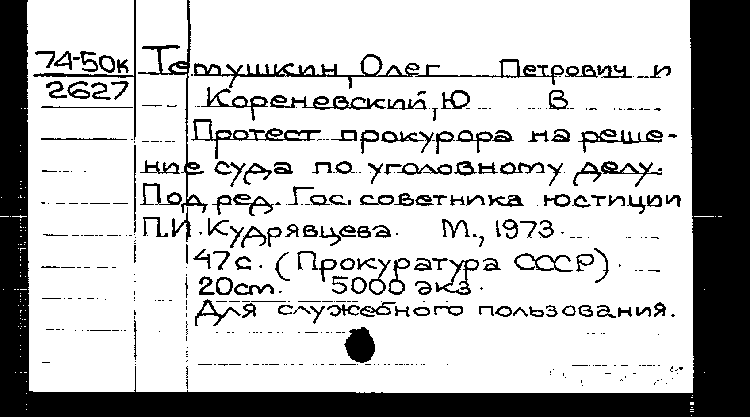 74-50к Темушкин, Олег Петрович и
2627 Кореневский, Ю В
Протест прокурора на реше-
ние суда по уголовному делу.
Под ред. Гос. советника юстиции
П.И. Кудрявцева. М., 1973.
47с. (Прокуратура СССР).
20cm. 5000 экз.
Для служебного пользования.